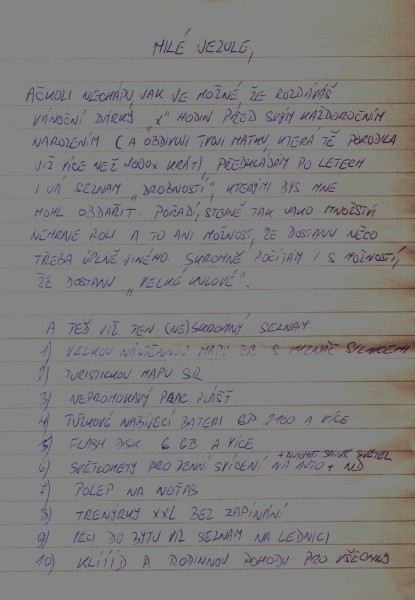 MILÉ JEZULE,
AČKOLI NECHÁPU, JAK JE MOŽNÉ ŽE ROZDÁVÁŠ
VÁNOČNÍ DÁRKY "X" HODIN PŘED SVÝM KAŽDOROČNÍM
NAROZENÍM (A OBDIVUJI TVOJI MATKU, KTERÁ TĚ PORODILA
JIŽ VÍCE NEŽ 2000x KRÁT), PŘEDKLÁDÁM PO LETECH
I JÁ SEZNAM "DROBNOSTÍ", KTERÝMI BYS MNE
MOHL OBDAŘIT. POŘADÍ, STEJNĚ TAK JAKO MNOŽSTVÍ
NEHRAJE ROLI A TO ANI MOŽNOST, ŽE DOSTANU NĚCO
TŘEBA ÚPLNĚ JINÉHO. SKROMNĚ POČÍTÁM I S MOŽNOSTÍ,
ŽE DOSTANU "VELKÉ KULOVÉ".
A TEĎ JIŽ TEN (NE)SKROMNÝ SEZNAM:
1) VELKOU NÁSTĚNNOU MAPU
2) TURISTICKOU MAPU SR
3) NEPROMOKAVÝ PLÁŠŤ
4) TUŽKOVÉ NABÍJECÍ BATERI GP 2100 A VÍCE
5) FLASH DISK 6 GB A VÍCE
6) SVĚTLOMETY PRO DENNÍ SVÍCENÍ NA AUTO +
7) POLEP NA NOTAS
8) TRENÝRKY XXL BEZ ZAPÍNÁNÍ
9) VĚCI DO BYTU VIZ SEZNAM NA LEDNICI
10) KLÍÍÍD A RODINNOU POHODU PRO VŠECHNY